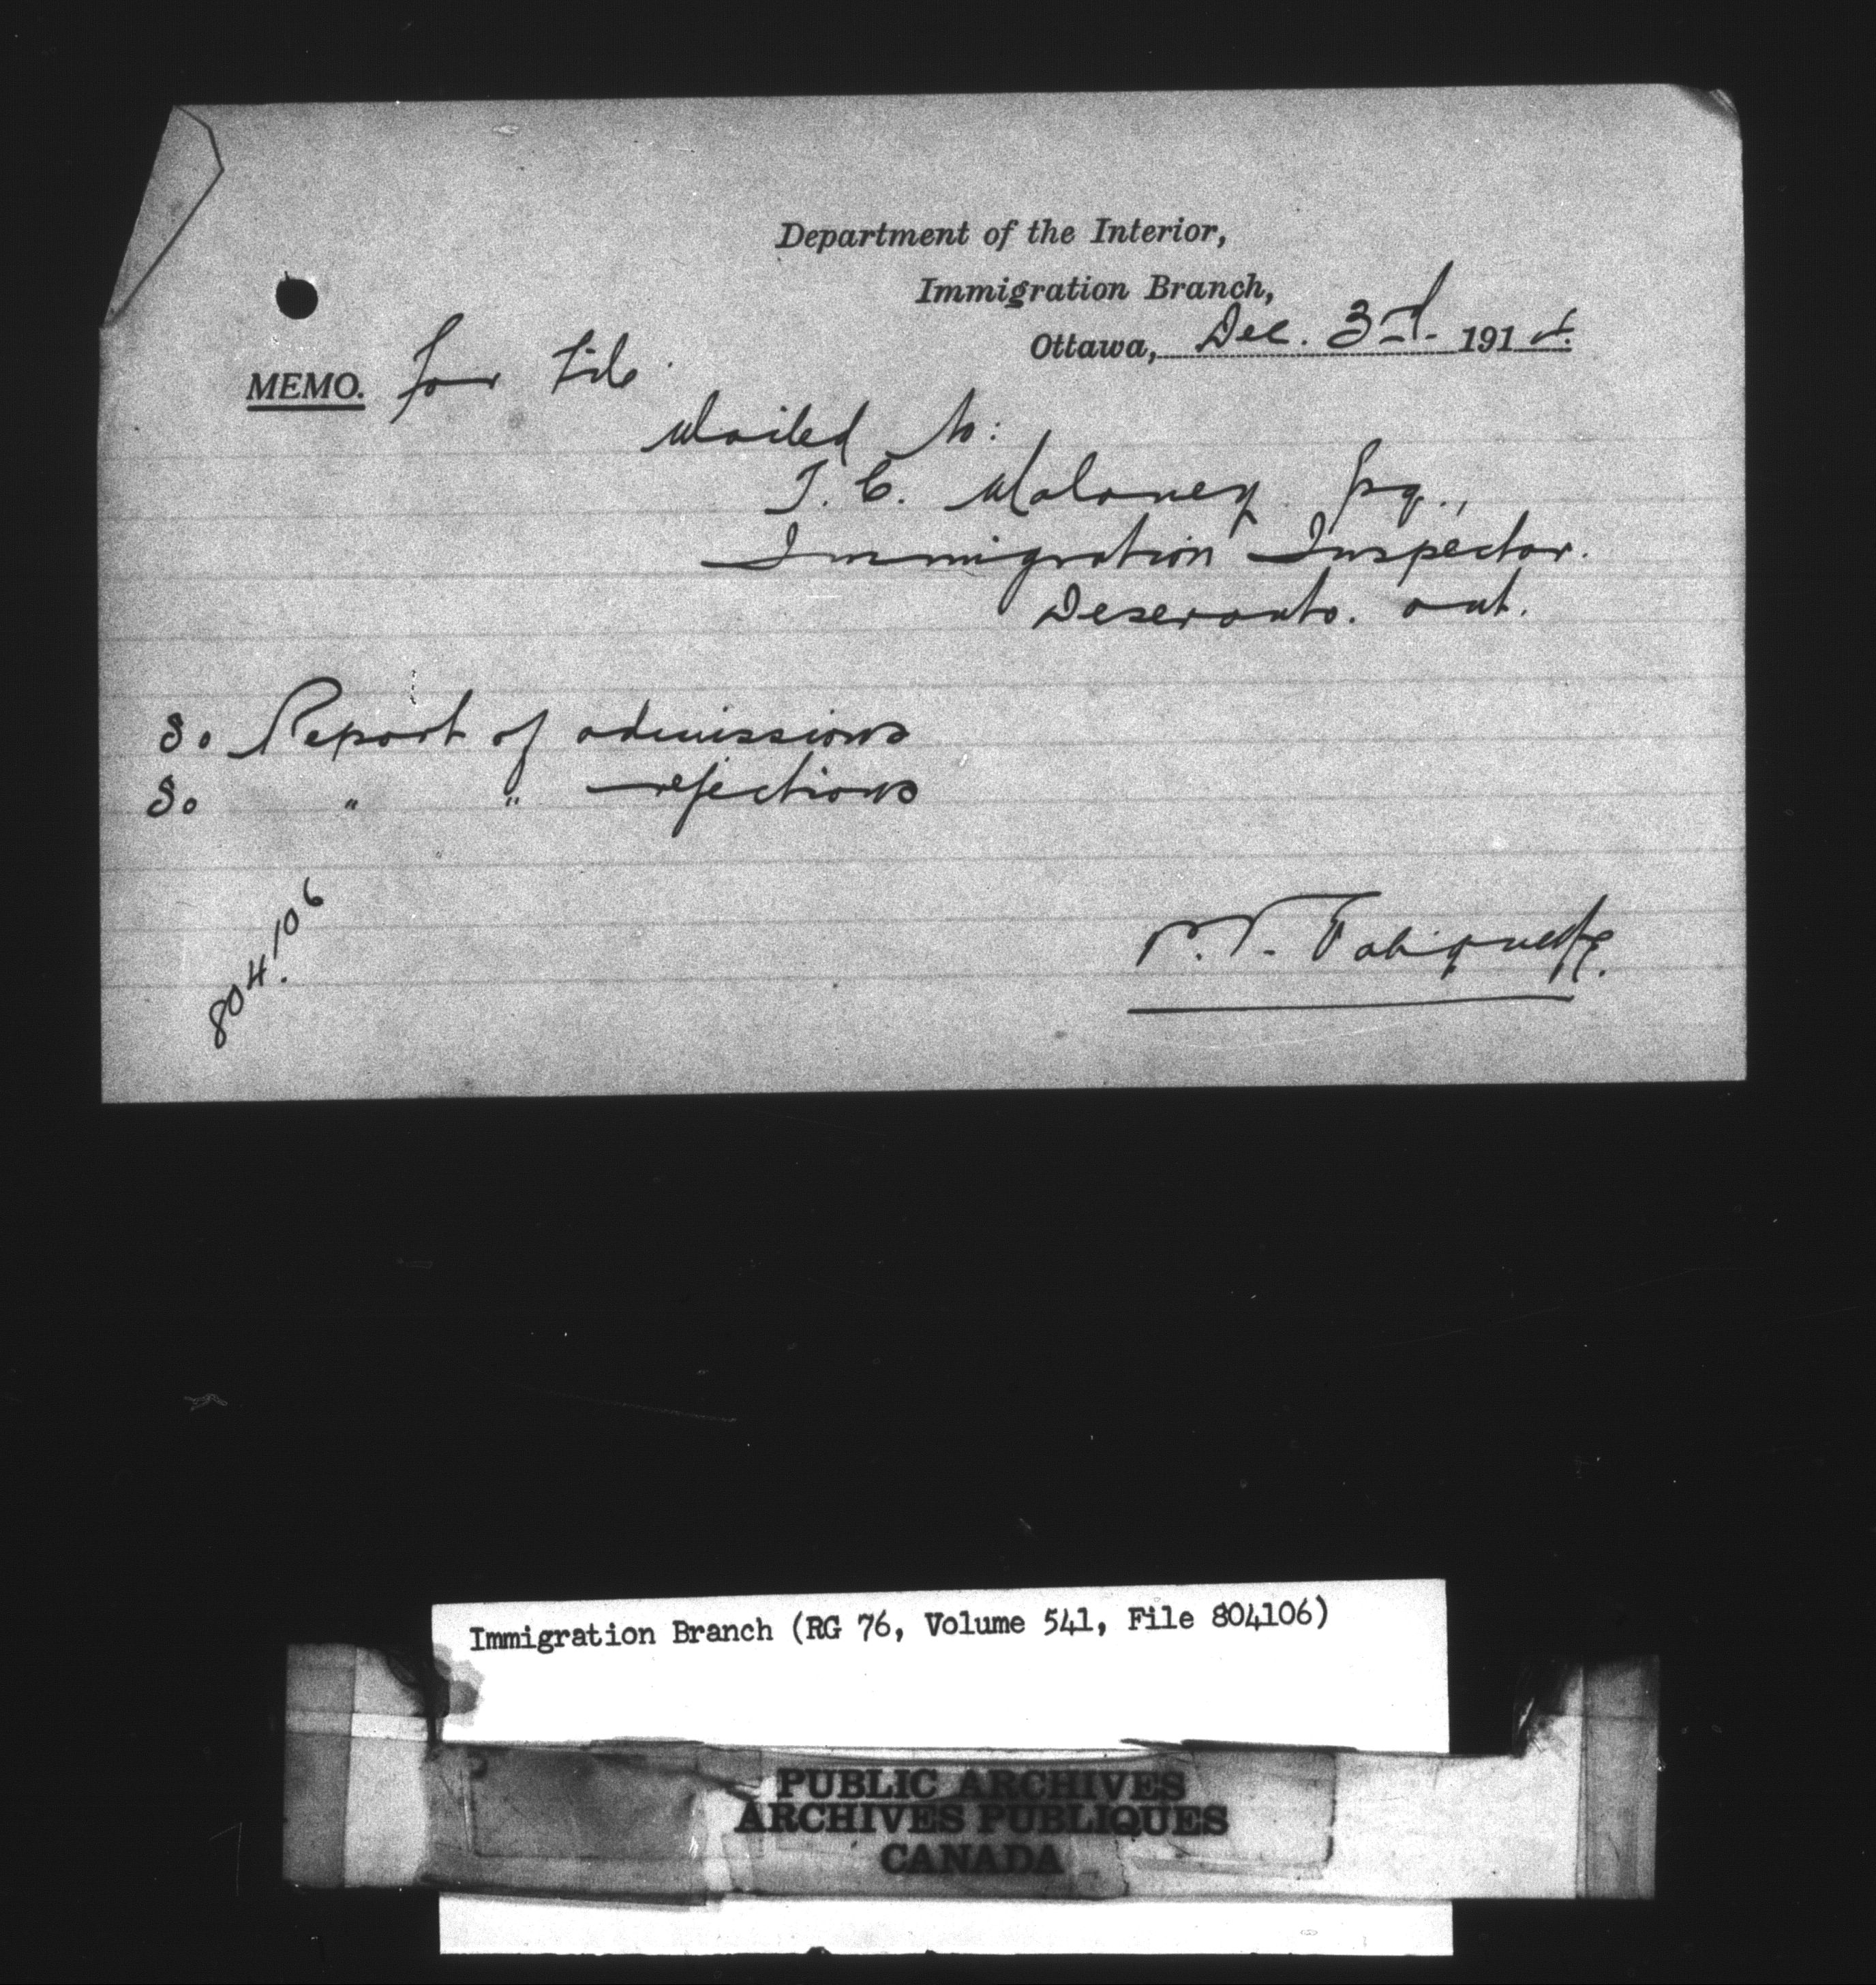 Department of the Interior,
Immigration Branch,
Ottawa, Dec. 3rd. 191
MEMO. for File.
Mailed to:
T. C. Maloney Esq.,
Immigration Inspector.
Deseronto. Ont.
Report of admissions
" " rejections
804.106
Immigration Branch (RG 76, Volume 541, File 804106)
PUBLIC ARCHIVES
ARCHIVES PUBLIQUES
CANADA